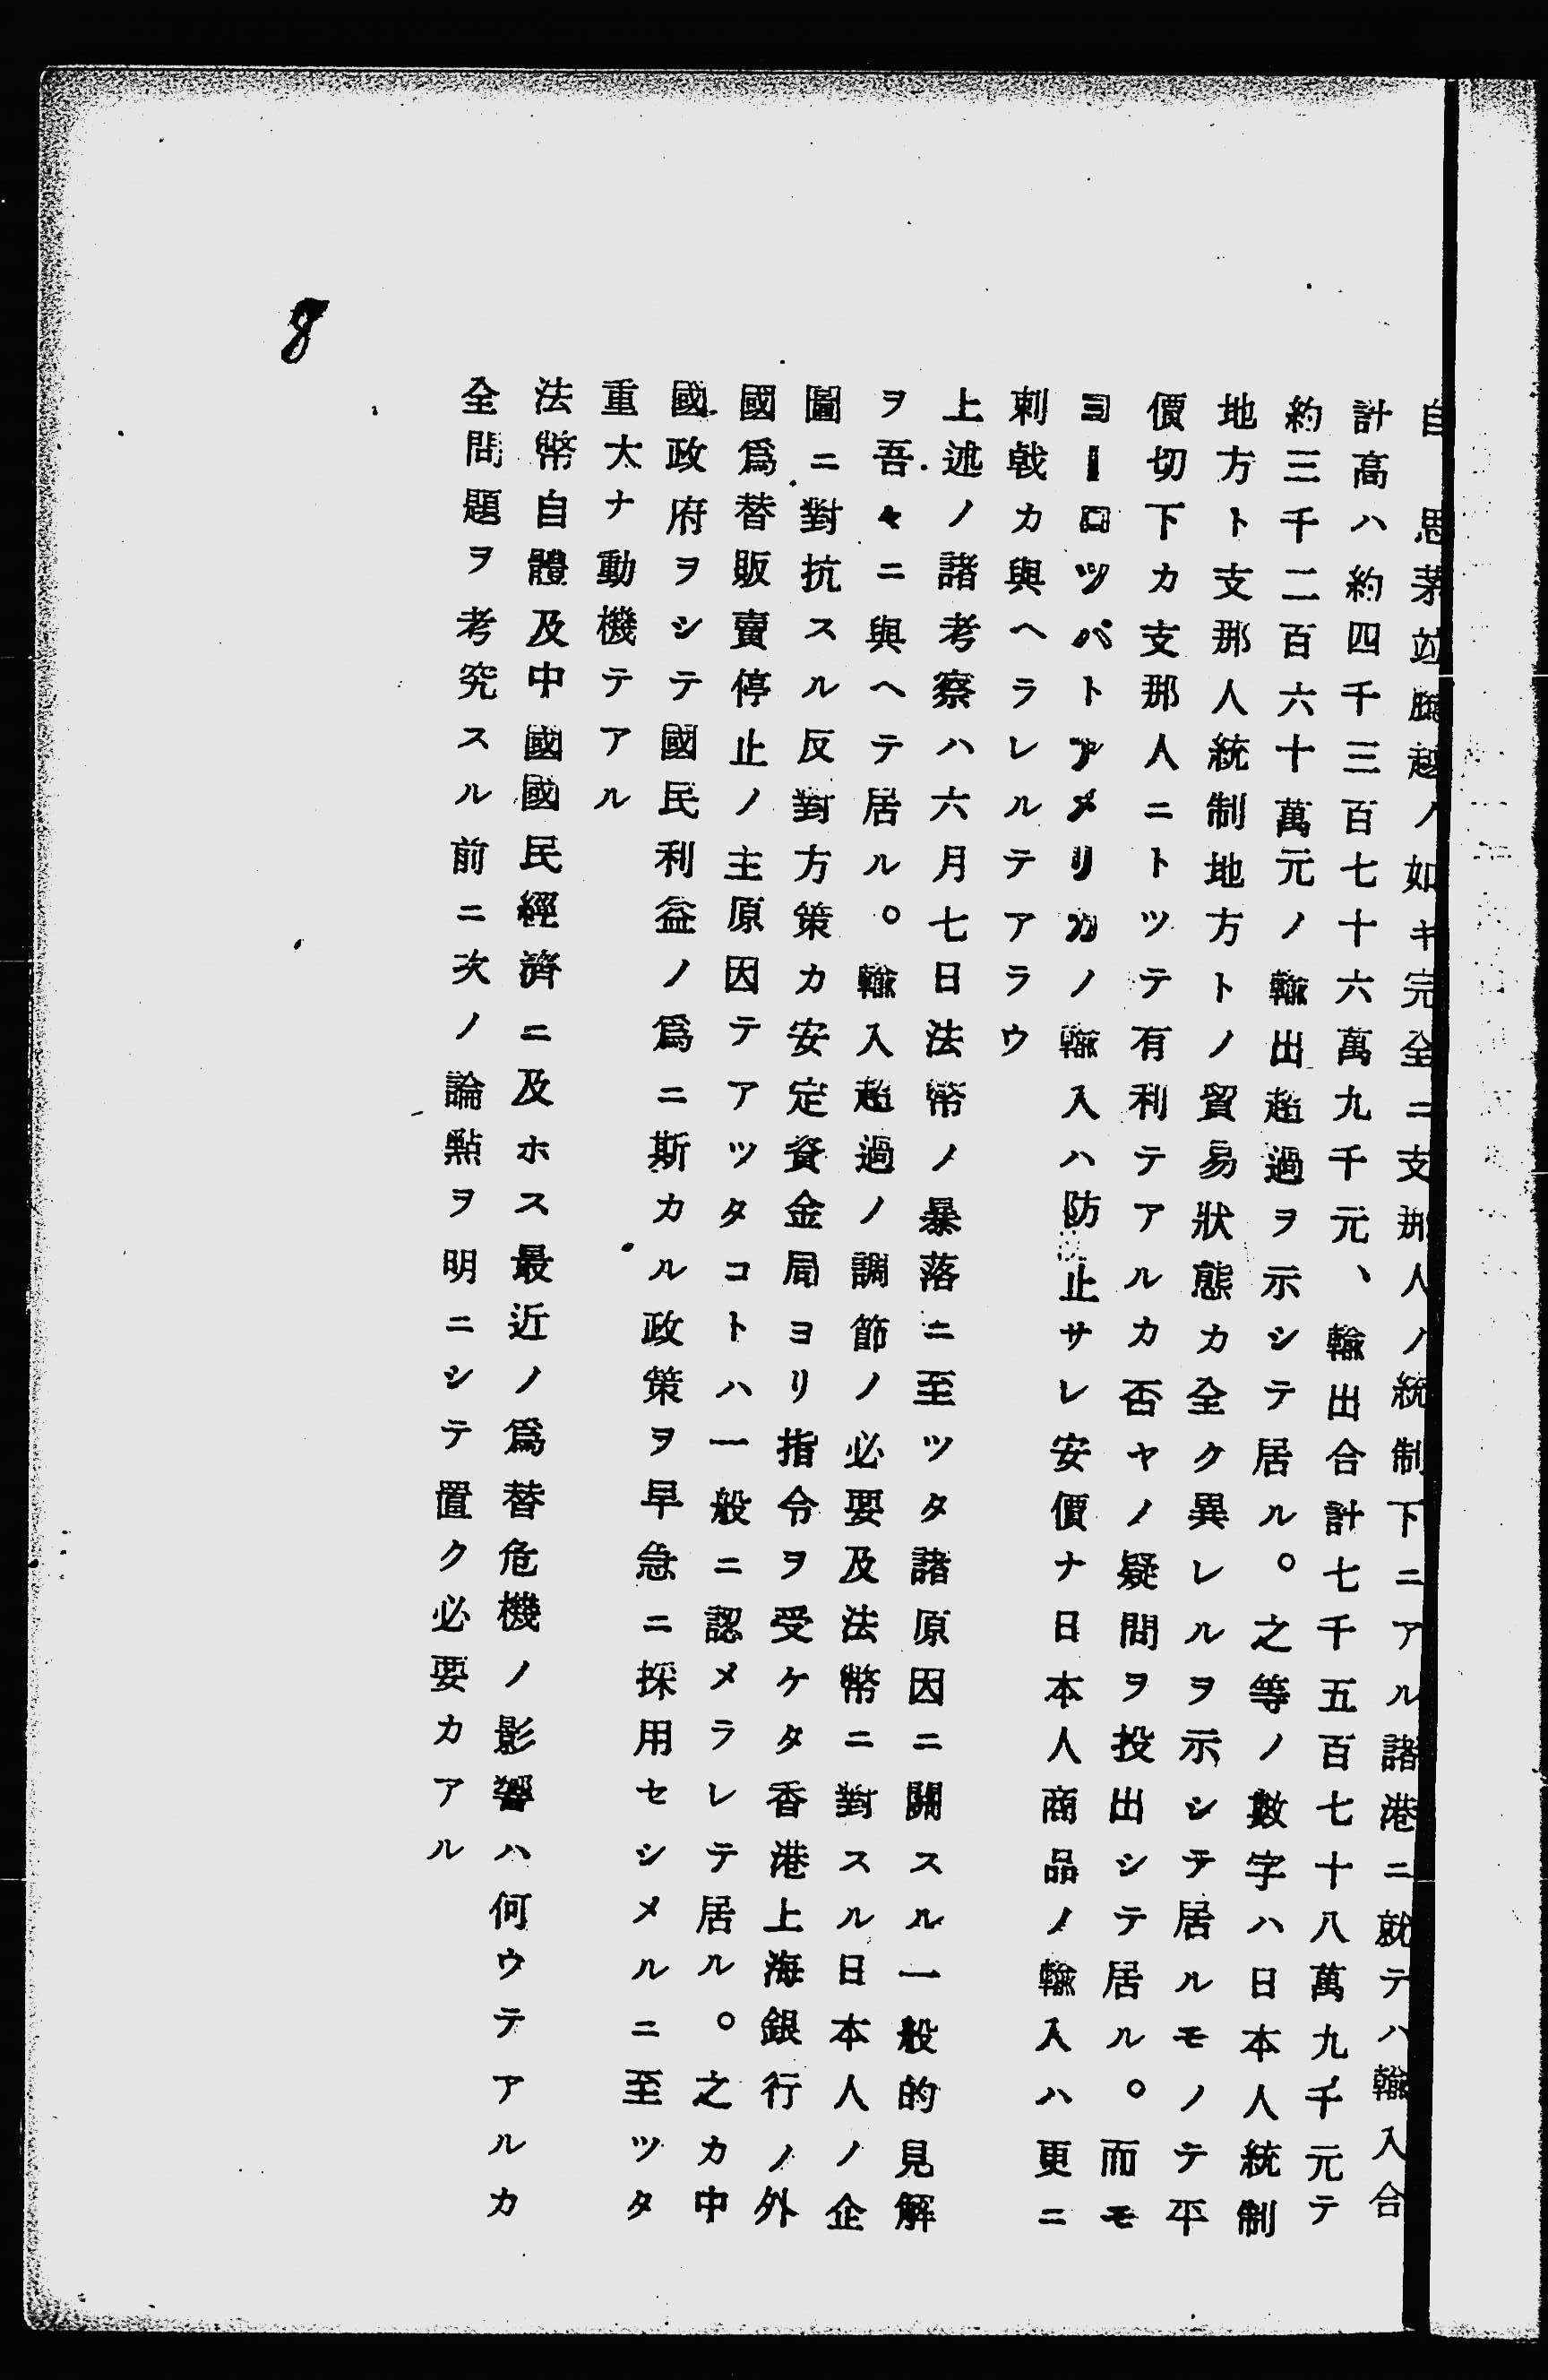 自思茅竝騰越ノ如キ完全ニ支那人ノ統制下ニアル諸港ニ就テハ輸入合
計高ハ約四千三百七十六萬九千元、輸出合計七千五百七十八萬九千元テ
約三千二百六十萬元ノ輸出超過ヲ示シテ居ル。之等ノ數字ハ日本人統制
地方ト支那人統制地方トノ貿易狀態カ全ク異レルヲ示シテ居ルモノテ平
價切下カ支那人ニトツテ有利テアルカ否ヤノ疑問ヲ投出シテ居ル。而モ
ヨーロツパトアメリカノ輸入ハ防止サレ安價ナ日本人商品ノ輸入ハ更ニ
刺戟カ與ヘラレルテアラウ
上述ノ諸考察ハ六月七日法幣ノ暴落ニ至ツタ諸原因ニ關スル一般的見解
ヲ吾々ニ與ヘテ居ル。輸入超過ノ調節ノ必要及法幣ニ對スル日本人ノ企
圖ニ對抗スル反對方策カ安定資金局ヨリ指令ヲ受ケタ香港上海銀行ノ外
國爲替販賣停止ノ主原因テアツタコトハ一般ニ認メラレテ居ル。之カ中
國政府ヲシテ國民利益ノ爲ニ斯カル政策ヲ早急ニ採用セシメルニ至ツタ
重大ナ動機テアル
法幣自體及中國國民經濟ニ及ホス最近ノ爲替危機ノ影響ハ何ウテアルカ
全問題ヲ考究スル前ニ次ノ論點ヲ明ニシテ置ク必要カアル
8